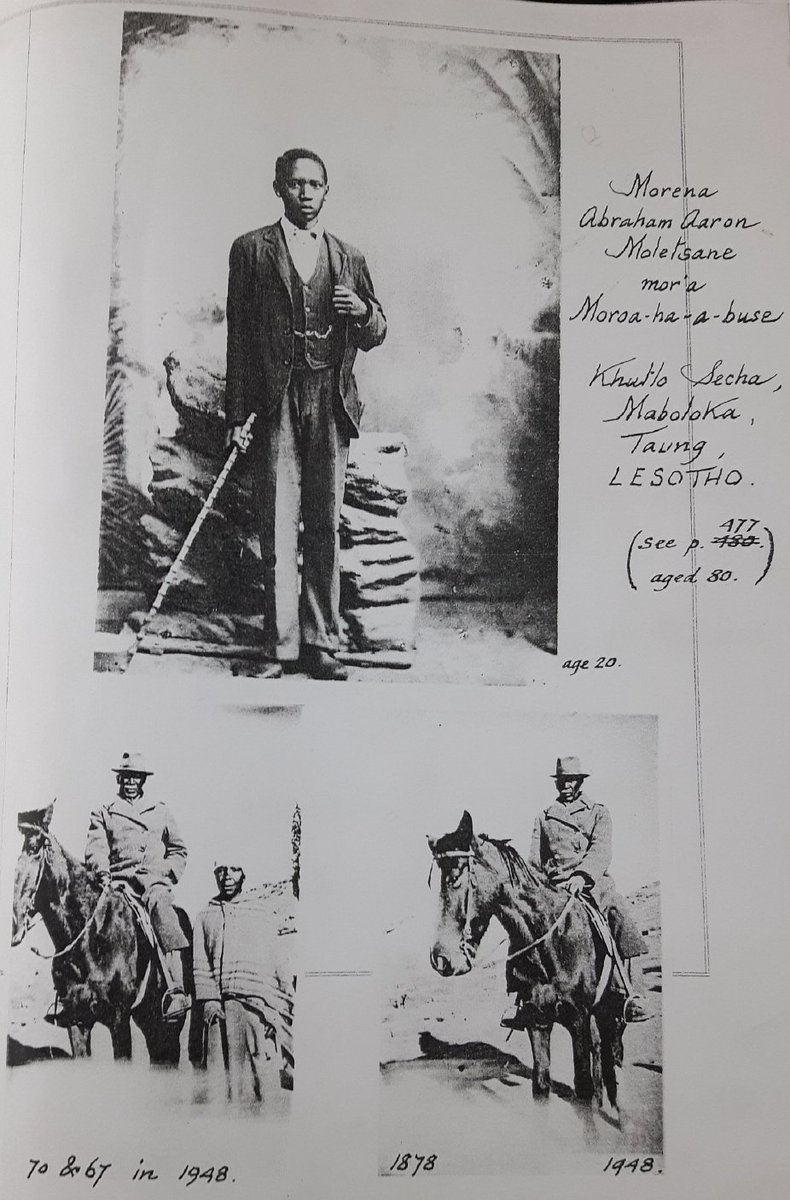 Morena
Abraham Aaron
Moletsane
mor'a
Moroa-ha-a-buse
Khutlo Secha,
Maboloka,
Taung,
LESOTHO.
(see p. 477 480.)
aged 80.
age 20.
70 & 67 in 1948.
1878 1948.